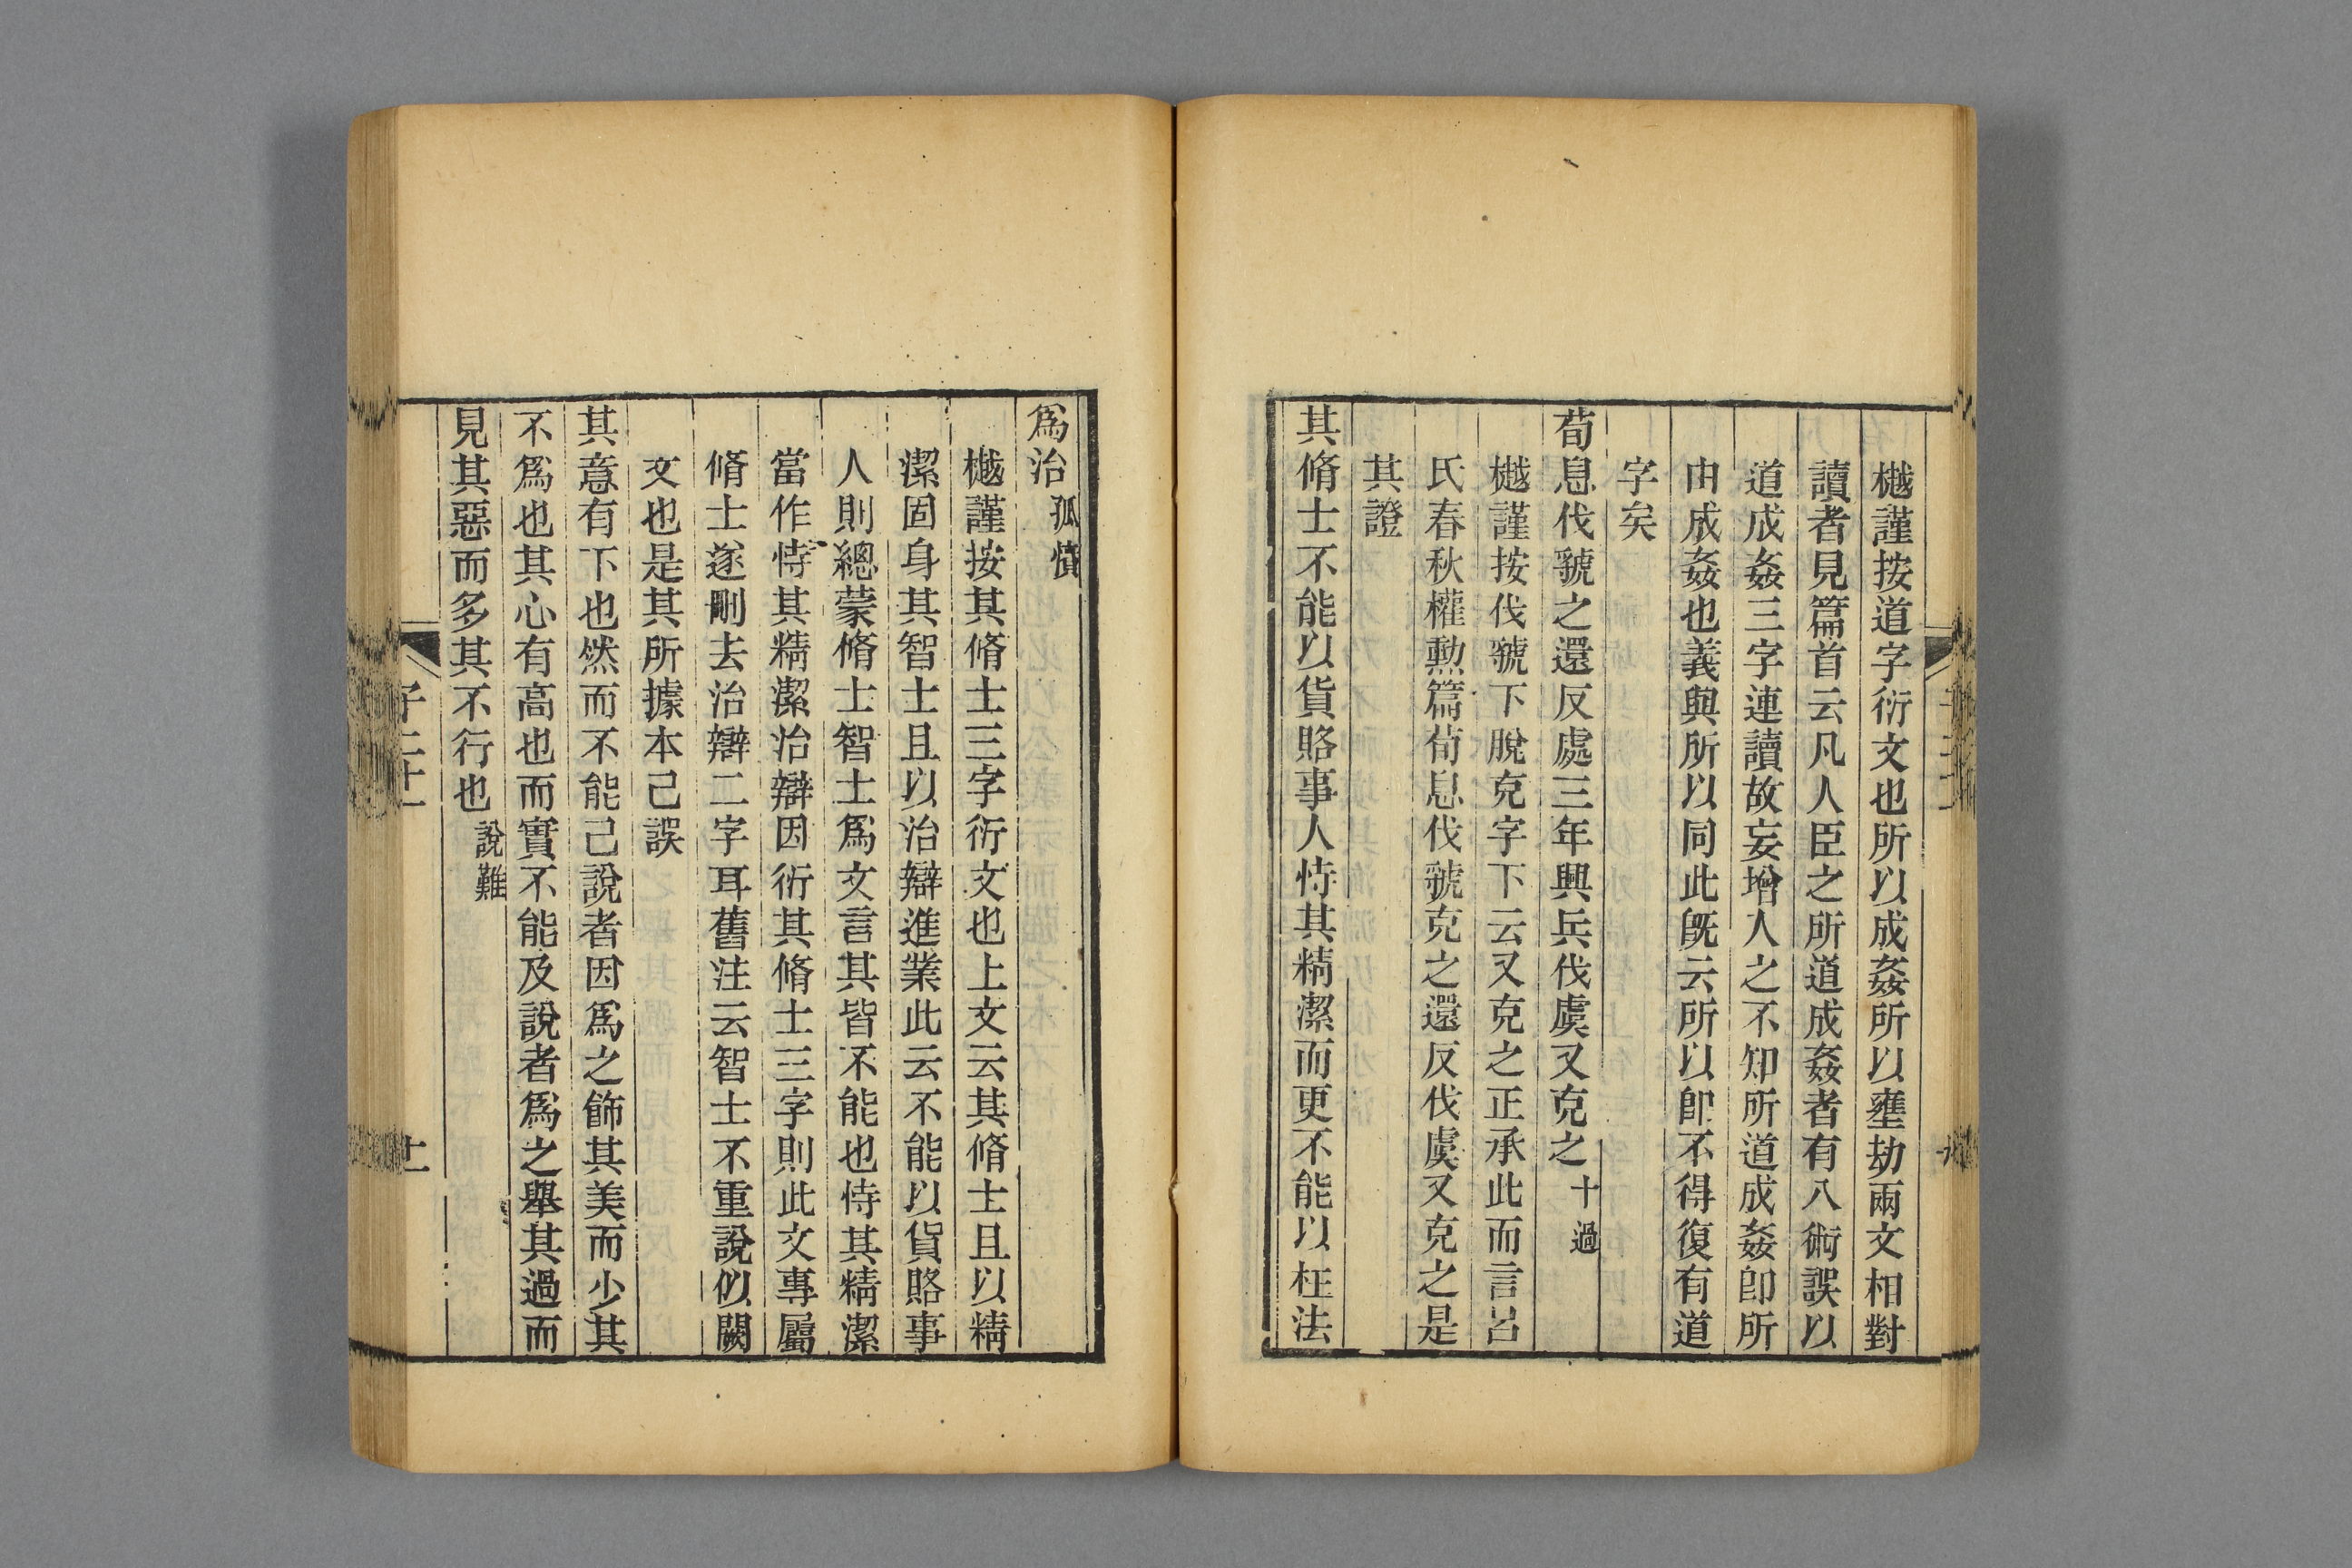 樾謹按道字衍文也所以成姦所以壅劫兩文相對
讀者見篇首云凡人臣之所道成姦者有八術誤以
道成姦三字連讀故妄增人之不知所道成姦卽所
由成姦也義與所以同此旣云所以卽不得復有道
字矣
荀息伐虢之還反處三年興兵伐虞又克之十過
樾謹按伐虢下脫克字下云又克之正承此而言呂
氏春秋權勳篇荀息伐虢克之還反伐虞又克之是
其證
其脩士不能以貨賂事人恃其精潔而更不能以枉法
爲治孤憤
樾謹按其脩士三字衍文也上文云其脩士且以精
潔固身其智士且以治辯進業此云不能以貨賂事
人則總蒙脩士智士爲文言其皆不能也恃其精潔
當作恃其精潔治辯因衍其脩士三字則此文專屬
脩士遂刪去治辯二字耳舊注云智士不重說似闕
文也是其所據本已誤
其意有下也然而不能己說者因爲之飾其美而少其
不爲也其心有高也而實不能及說者爲之舉其過而
見其惡而多其不行也說難
子二十一
十一